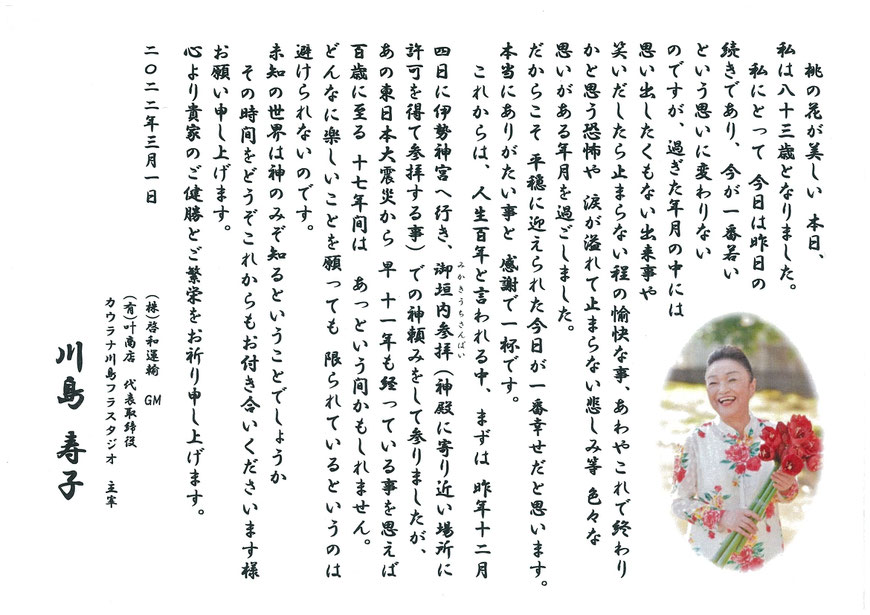 桃の花が美しい 本日、
私は八十三歳となりました。
私にとって 今日は昨日の
続きであり、今が一番若い
という思いに変わりない
のですが、過ぎた年月の中には
思い出したくもない出来事や
笑いだしたら止まらない程の愉快な事、あわやこれで終わり
かと思う恐怖や 涙が溢れて止まらない悲しみ等 色々な
思いがある年月を過ごしました。
だからこそ 平穏に迎えられた今日が一番幸せだと思います。
本当にありがたい事と 感謝で一杯です。
これからは、人生百年と言われる中、まずは 昨年十二月
四日に伊勢神宮へ行き、御垣内参拝（神殿に寄り近い場所に
みかきうちさんぱい
許可を得て参拝する事）での神頼みをして参りましたが、
あの東日本大震災から 早 十一年も経っている事を思えば
百歳に至る 十七年間は あっという間かもしれません。
どんなに楽しいことを願っても 限られているというのは
避けられないのです。
未知の世界は神のみぞ知るということでしょうか
その時間をどうぞこれからもお付き合いくださいます様
お願い申し上げます。
心より貴家のご健勝とご繁栄をお祈り申し上げます。
二〇二二年三月一日
（株）啓和運輸 GM
（有）叶商店 代表取締役
カウラナ川島フラスタジオ 主宰
川島 寿子